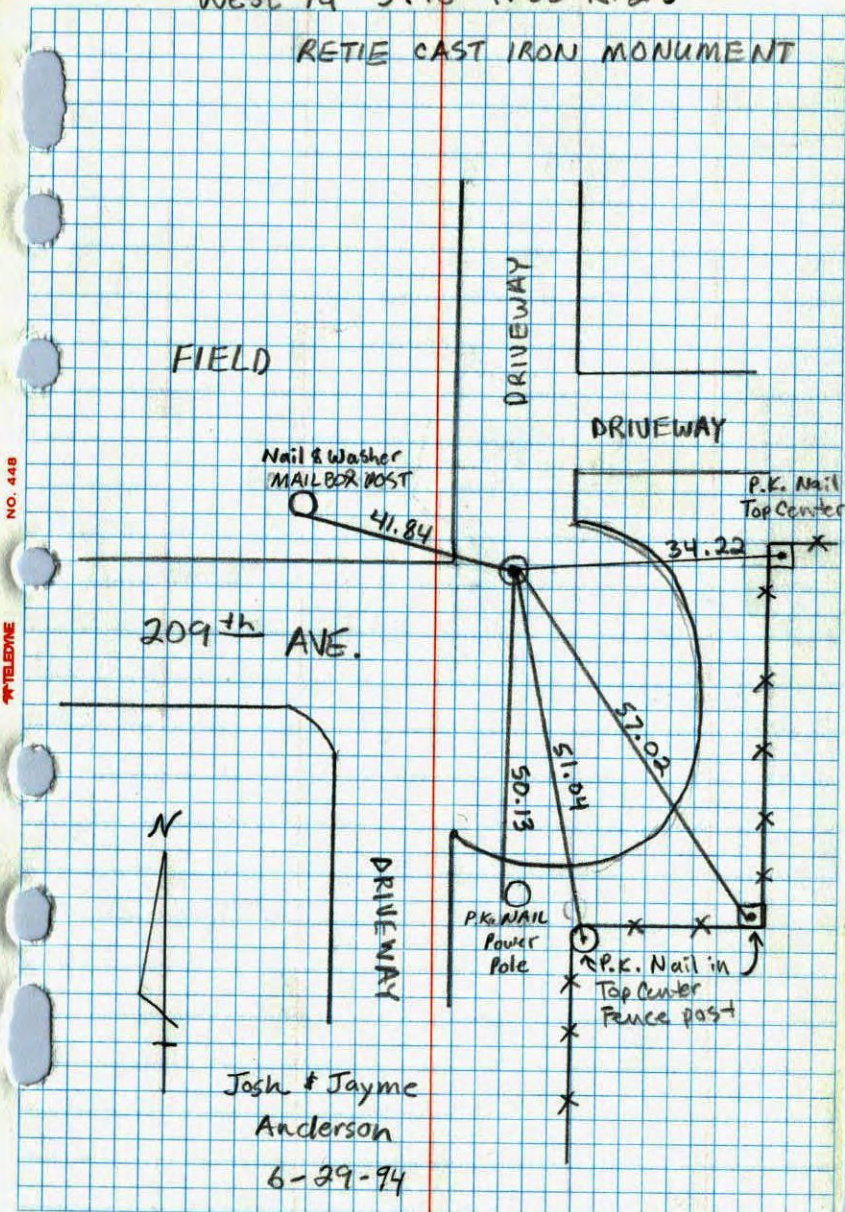 RETIE CAST IRON MONUMENT
DRIVEWAY
FIELD
DRIVEWAY
Nail & Washer
MAILBOX POST
P.K. Nail
Top Center
41.84
34.22
209th AVE.
57.02
51.04
50.13
N
DRIVEWAY
P.K. NAIL
Power
Pole
P.K. Nail in
Top Center
Fence post
Josh & Jayme
Anderson
6-29-94
NO. 448
TELEDYNE